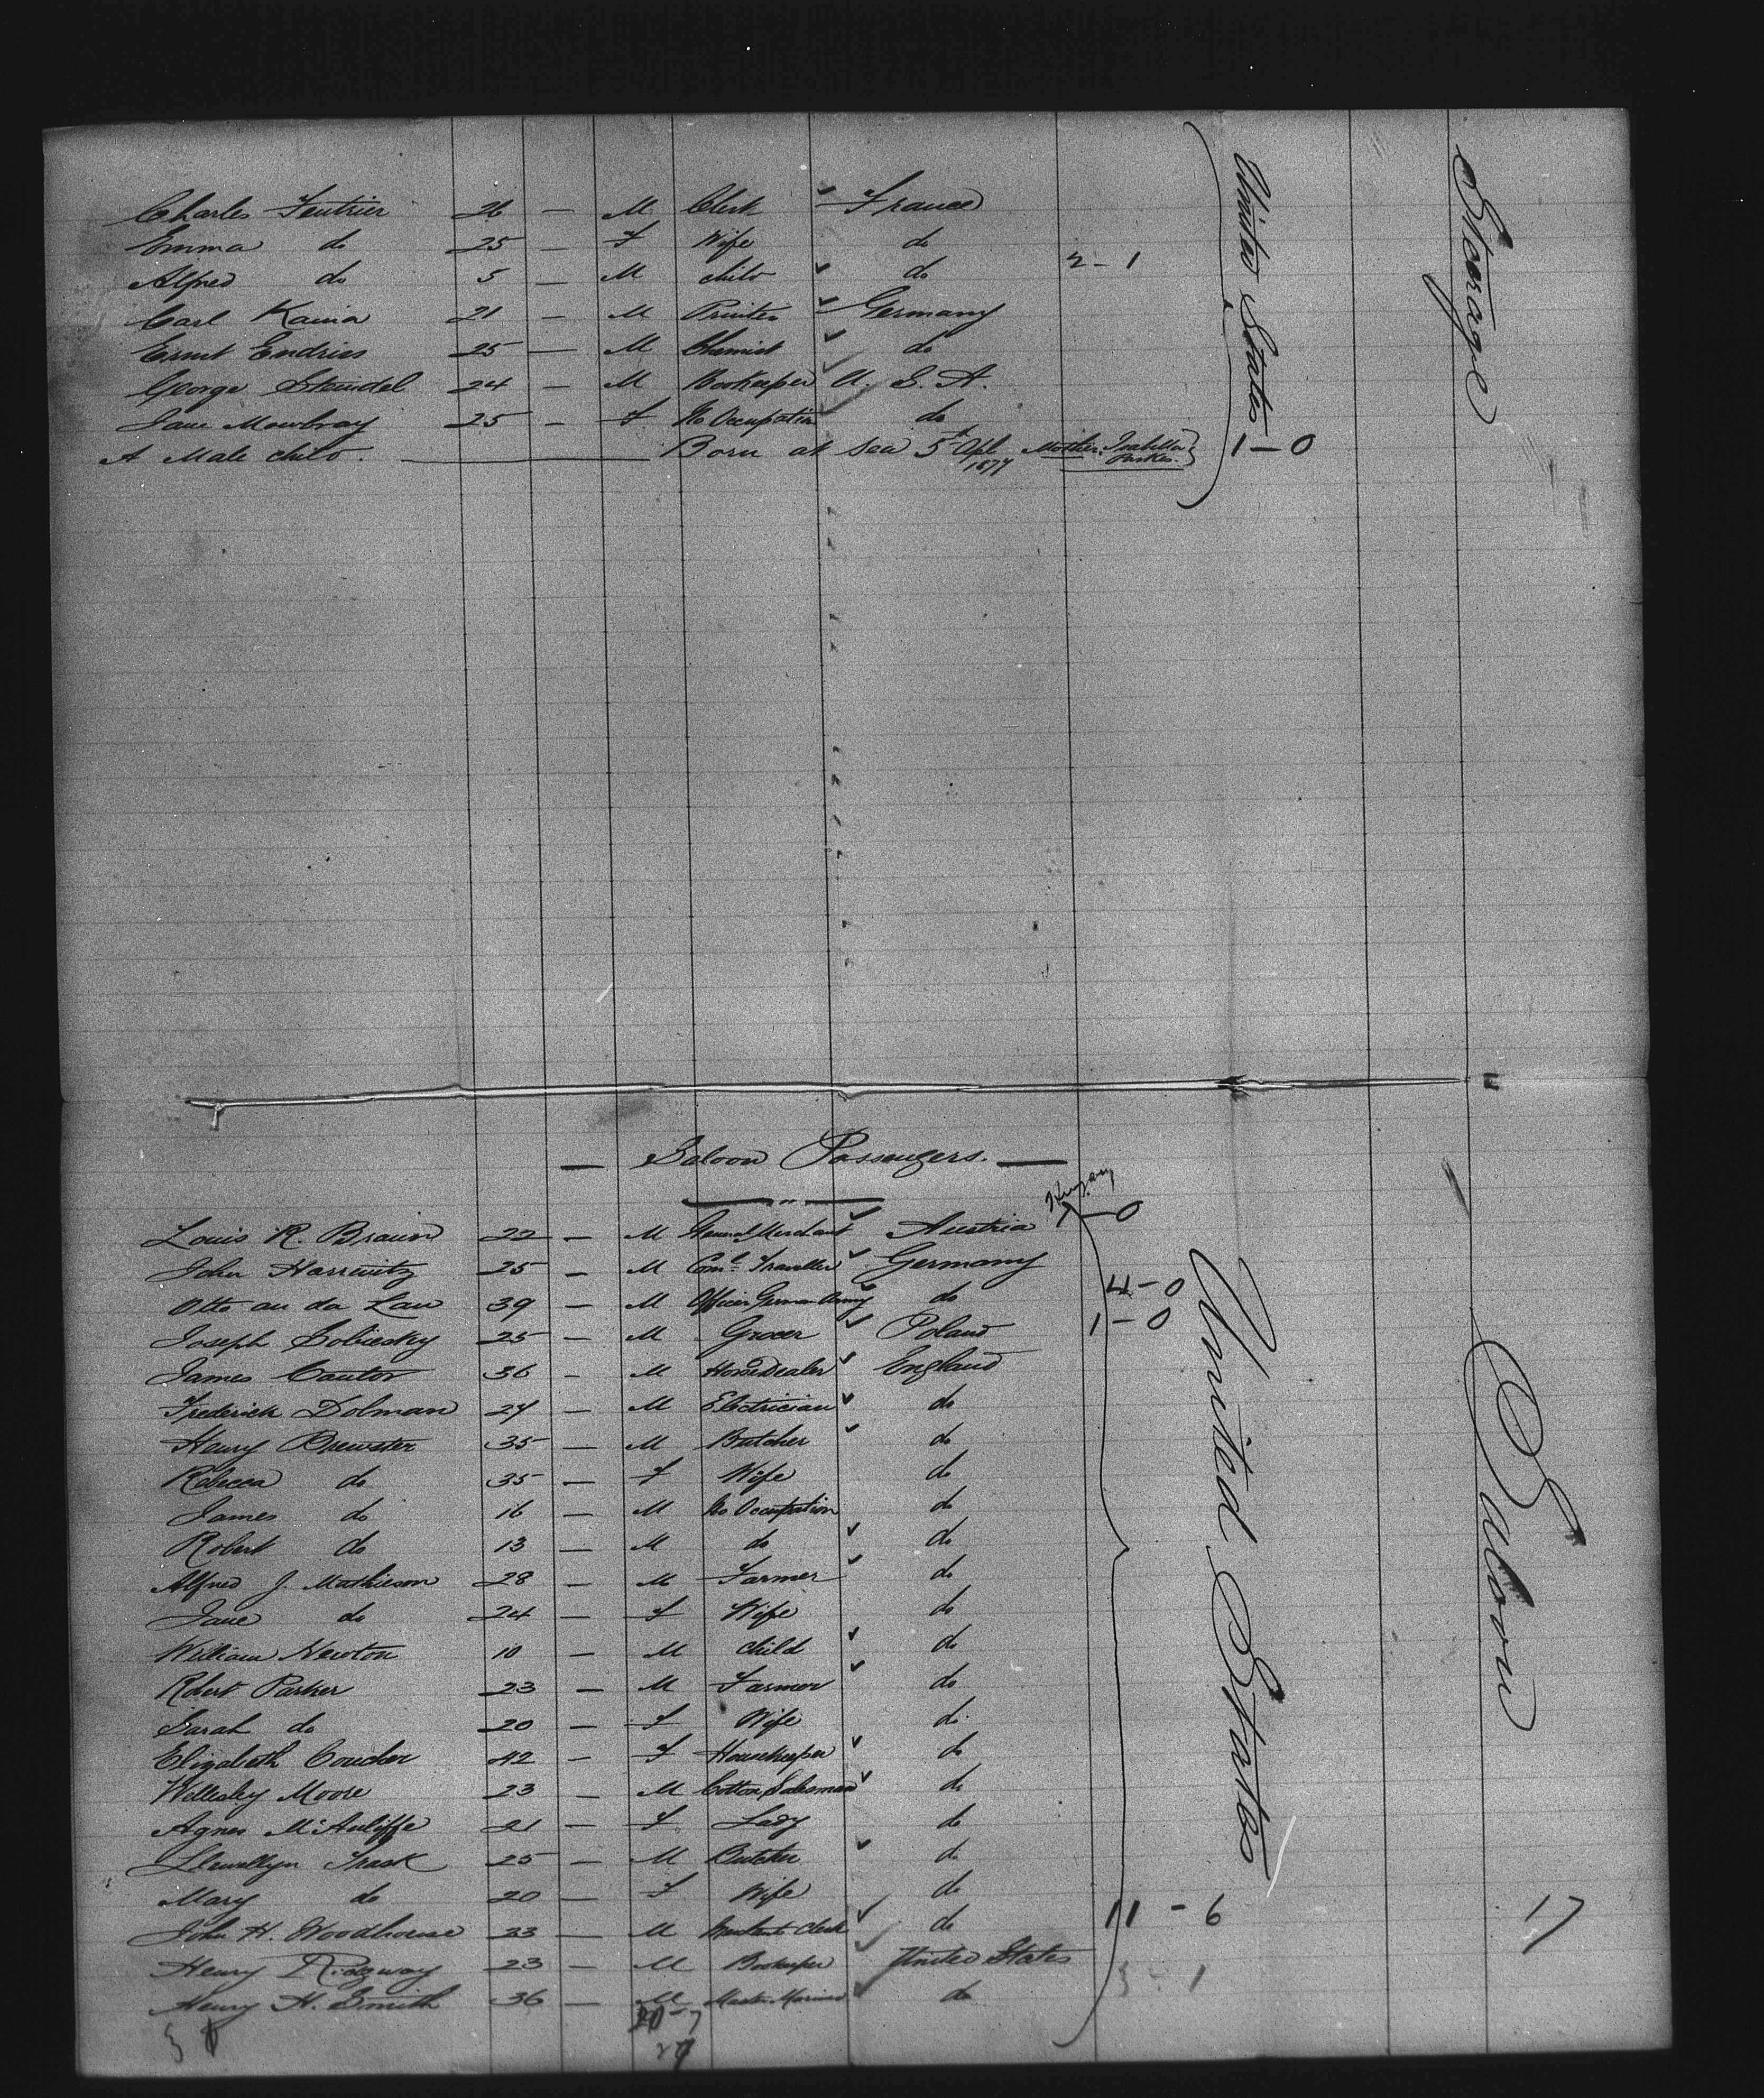 Charles Feutrier 26 — M Clerk France
Emma do 25 — F Wife do
Alfred do 5 — M child do 2 - 1
Carl Kaina 21 — M Printer Germany
Ernst Endries 25 — M Chemist do
George Steudel 24 — M Bookeeper U. S. A.
Jane Mowbray 25 — F No Occupation do
A Male child. Born at sea 5th Apl 1877 Mother Isabella Parkes. 1 - 0
United States
Steerage
— Saloon Passengers. —
Hungary
1 - 0
Louis R. Braun 22 — M General Merchant Austria
John Harrwitz 25 — M Coml Traveller Germany
4 - 0
Otto au da Lau 39 — M Officer German Army do
1 - 0
Joseph Sobiesky 25 — M Grocer Poland
James Cantor 36 — M Horse Dealer England
Frederick Dolman 27 — M Electrician do
Henry Brewster 35 — M Butcher do
Rebecca do 35 — F Wife do
James do 16 — M No Occupation do
Robert do 13 — M do do
Alfred J. Mathieson 28 — M Farmer do
Jane do 24 — F Wife do
William Newton 10 — M Child do
Robert Parker 23 — M Farmer do
Sarah do 20 — F Wife do
Elizabeth Coucher 42 — F Housekeeper do
Wellesley Moore 23 — M Cotton Salesman do
Agnes McAuliffe 21 — F Lady do
Llewellyn Trask 25 — M Butcher do
Mary do 20 — F Wife do
John H. Woodhouse 23 — M Merchants Clerk do 11 - 6
Henry Ridgway 23 — M Bookeeper United States
Henry H. Smith 36 — M Master Mariner do 3 - 1
United States
Saloon
17
20 - 7